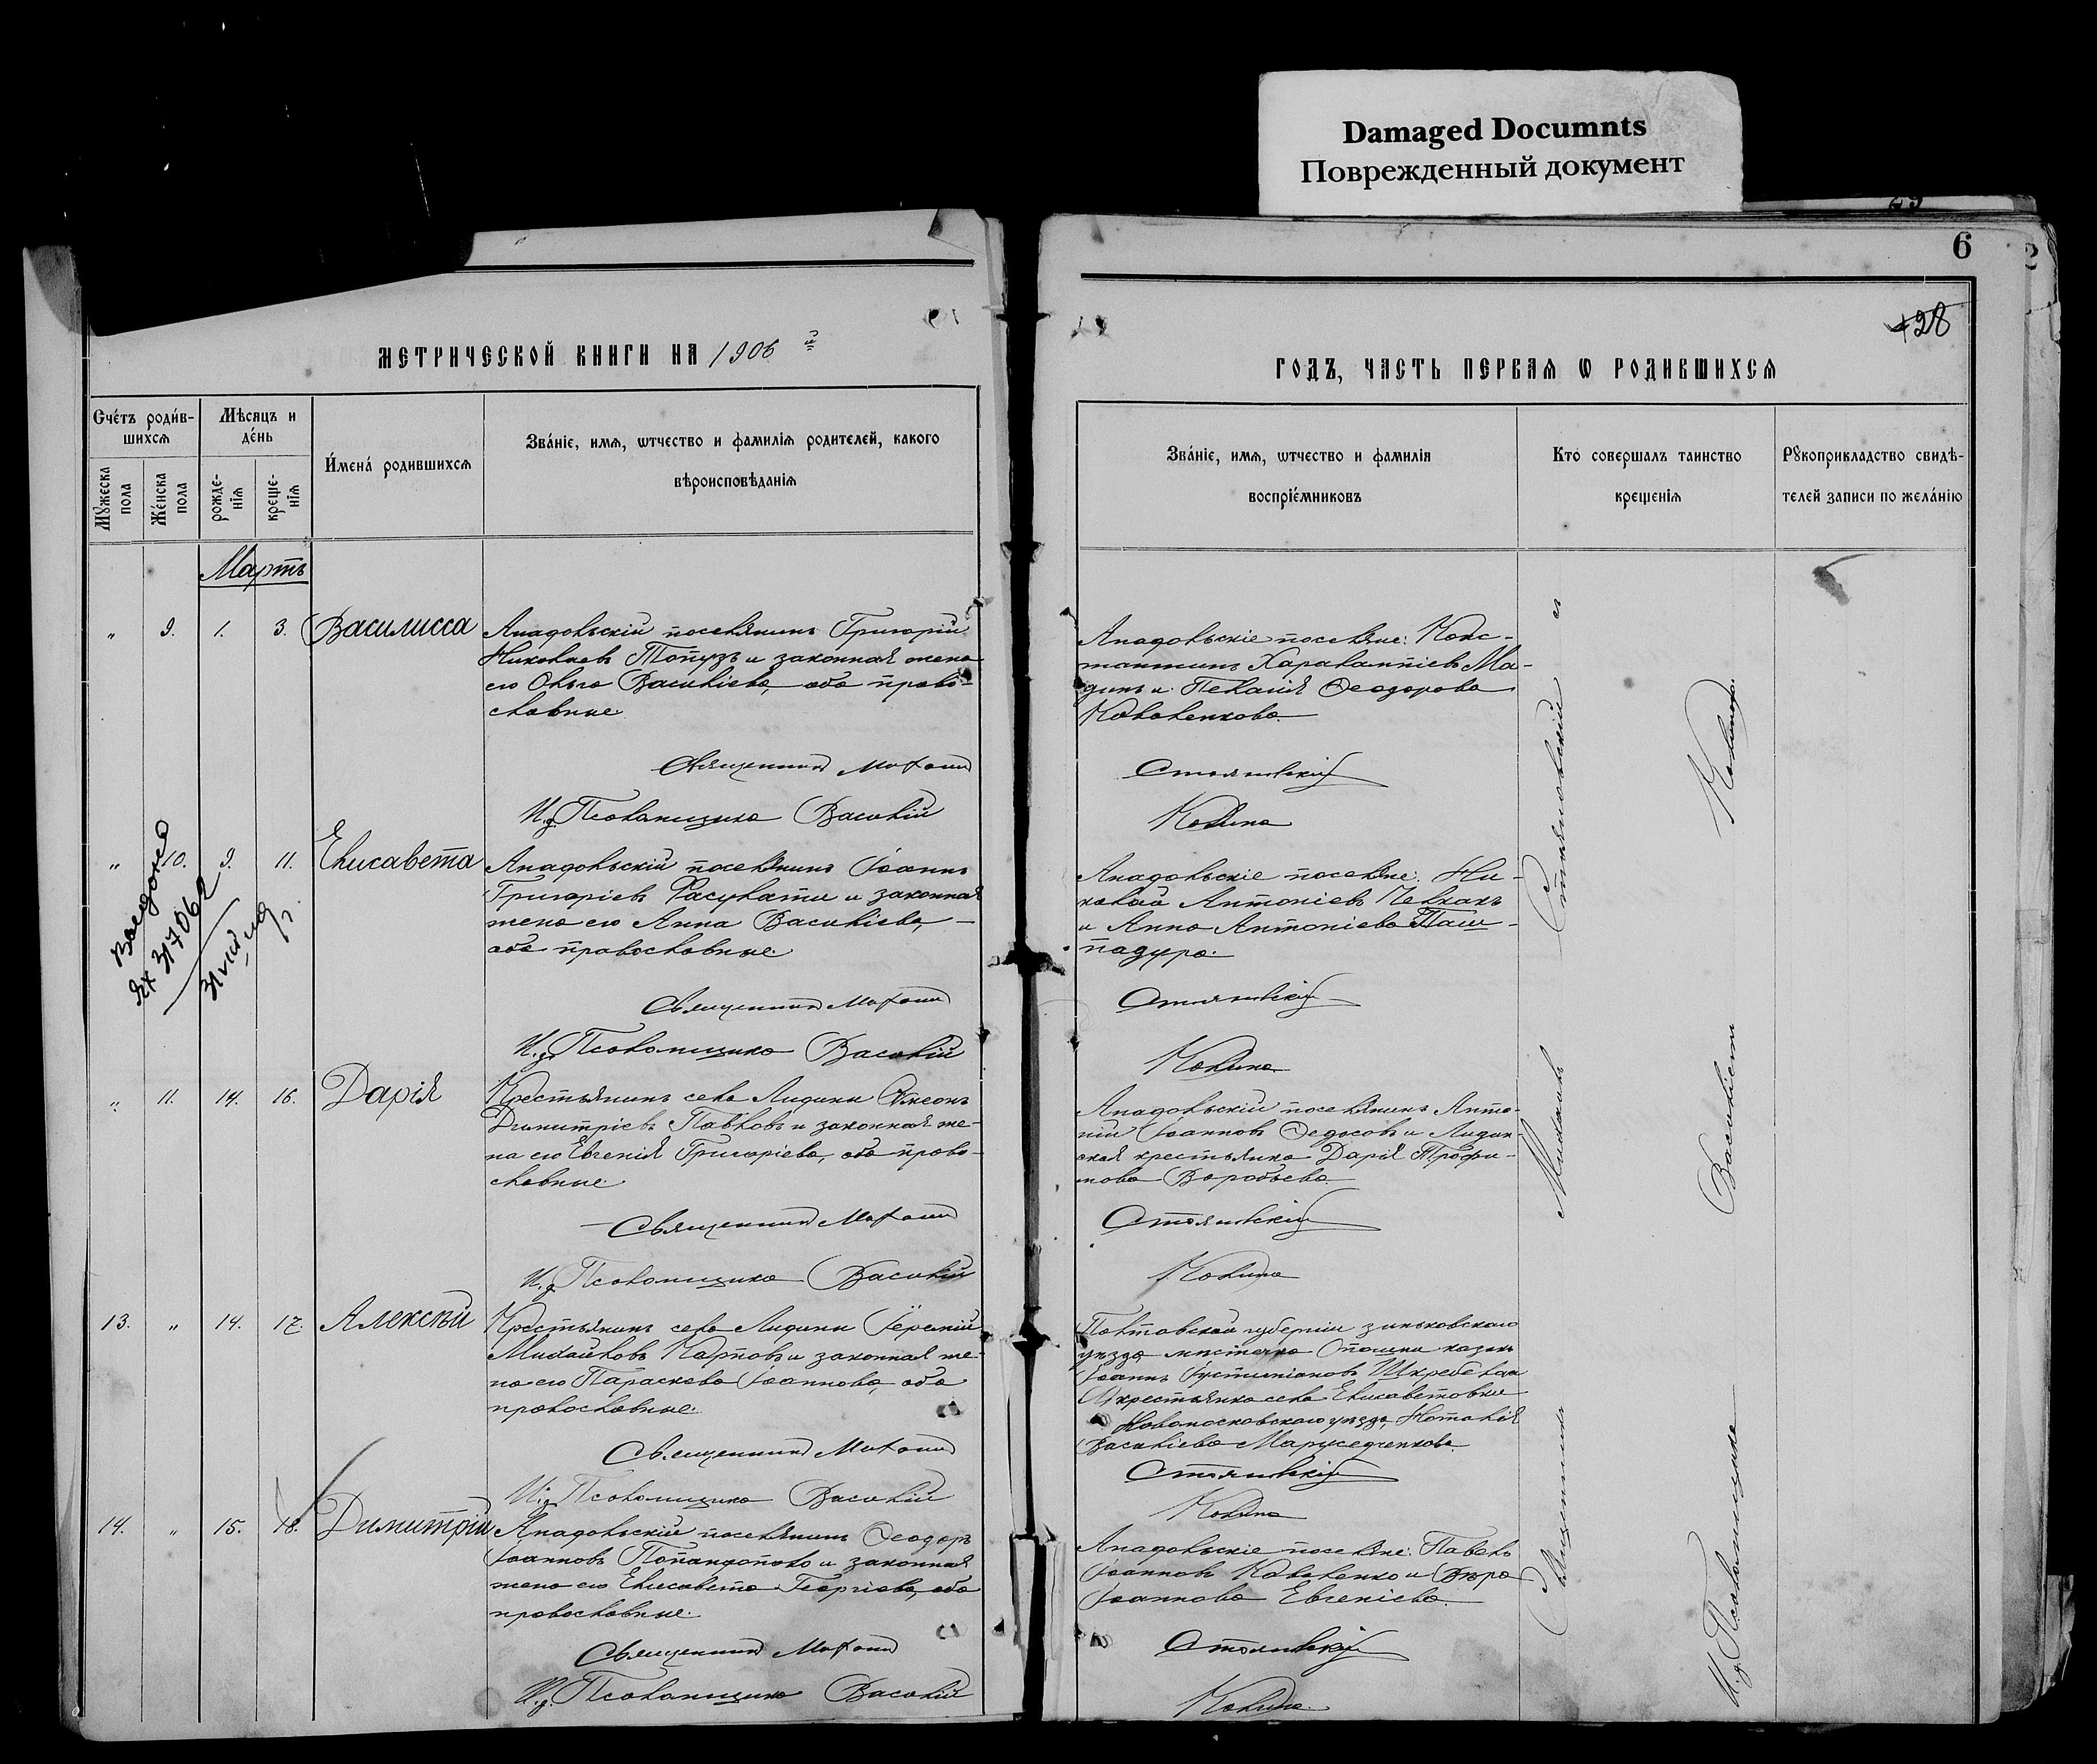 Damaged Documnts
Поврежденный документ
6
28
МЕТРИЧЕСКОЙ КНИГИ НА 1906 й
ГОДЪ, ЧАСТЬ ПЕРВАѦ Ѡ РОДИВШИХСѦ
Счéтъ роди́в-
шихсѧ
Мꙋжеска пола
Жéнска пола
Мѣсяцъ и
дéнь
рожде-
нїѧ
креще-
нїѧ
И́мена́ родившихсѧ
Зва́нїе, имѧ, ѡтчество и фамилїѧ родителей, какого
вѣроисповѣданїѧ
Зва́нїе, имѧ, ѡтчество и фамилїѧ
воспрїе́мниковъ
Кто́ совершалъ таинство
крещенїѧ
Рꙋкоприкладство свидѣ-
телей записи по жела́нїю
Мартъ
" 9. 1. 3. Василисса
Анадольскій поселянинъ Григорій
Николаевъ Топузъ и законная жена
его Ольга Васильева, оба право-
славные.
Священникъ Михаилъ
И.д. Псаломщика Василій
Анадольскіе поселяне: Конс-
тантинъ Харлампіевъ Ма-
динъ и Пелагія Ѳеодорова
Коваленкова.
Стояновскій
" 10. 9. 11. Елисавета
Анадольскій поселянинъ Іоаннъ
Григоріевъ и законная
жена его Анна Васильева,
оба православные.
Священникъ Михаилъ
И.д. Псаломщика Василій
Анадольскіе поселяне: Ни-
колай Антоніевъ Челпахъ
и Анна Антоніева Паш-
падура.
Стояновскій
" 11. 14. 16. Дарія
Крестьянинъ села Лидини Симеонъ
Димитріевъ Павловъ и законная же-
на его Евгенія Григоріева, оба право-
славные.
Священникъ Михаилъ
И.д. Псаломщика Василій
Анадольскій поселянинъ Анто-
ній Іоанновъ Ѳедосовъ и Лидин-
ская крестьянка Дарія Трофи-
мова Воробьева.
Стояновскій
13. " 14. 17. Алексѣй
Крестьянинъ села Лидини Іеремій
Михайловъ Карповъ и законная же-
на его Параскева Іоаннова, оба
православные.
Священникъ Михаилъ
И.д. Псаломщика Василій
Полтавской губерніи зиньковскаго
уѣзда, мѣстечка Опошни казакъ
Іоаннъ Іустиніановъ
и крестьянка села Елисаветовки
Новомосковскаго уѣзда, Наталія
Васильева
Стояновскій
14. " 15. 18. Димитрій
Анадольскій поселянинъ Ѳеодоръ
Іоанновъ Попандополо и законная
жена его Елисавета Георгіева, оба
православные.
Священникъ Михаилъ
И.д. Псаломщика Василій
Анадольскіе поселяне: Павелъ
Іоанновъ Коваленко и Вѣра
Іоаннова Евгеніева.
Стояновскій
Священникъ Михаилъ Стояновскій и
И.д. Псаломщика Василій